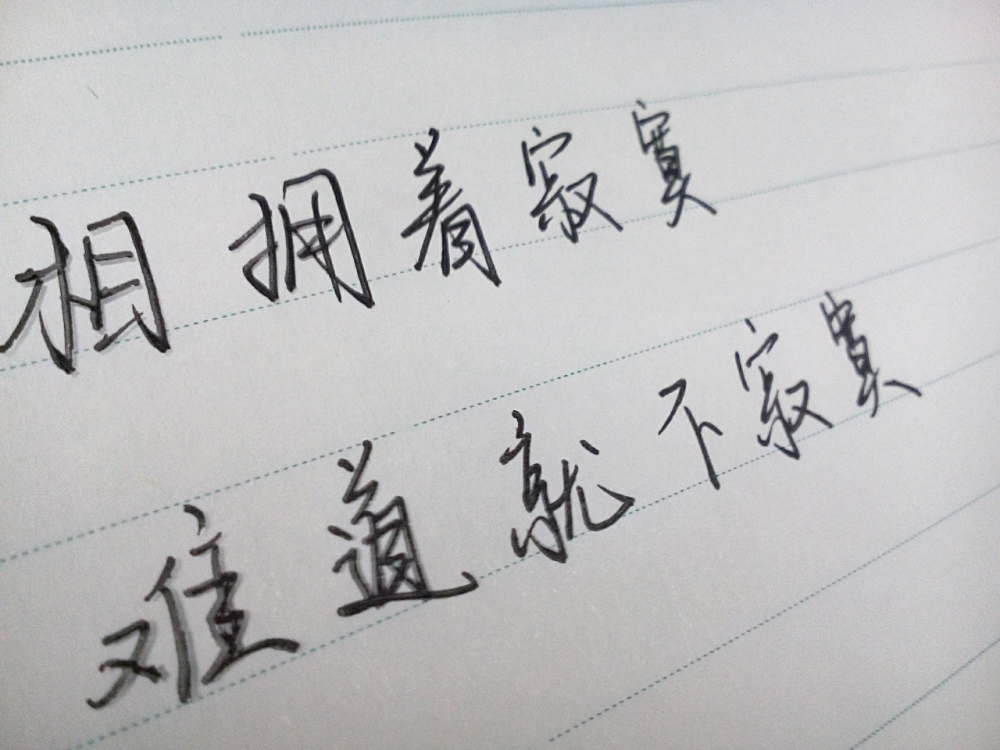 相拥着寂寞
难道就不寂寞